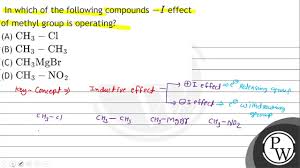 In which of the following compounds −I effect
of methyl group is operating?
(A) CH₃ − Cl
(B) CH₃ − CH₃
(C) CH₃MgBr
(D) CH₃ − NO₂
Key-Concept → Inductive effect → ⊕ I effect → e⊖ Releasing group
⊖ I effect → e⊖ withdrawing group
CH₃-Cl CH₃ — CH₃ CH₃ - MgBr CH₃ - NO₂
P
W